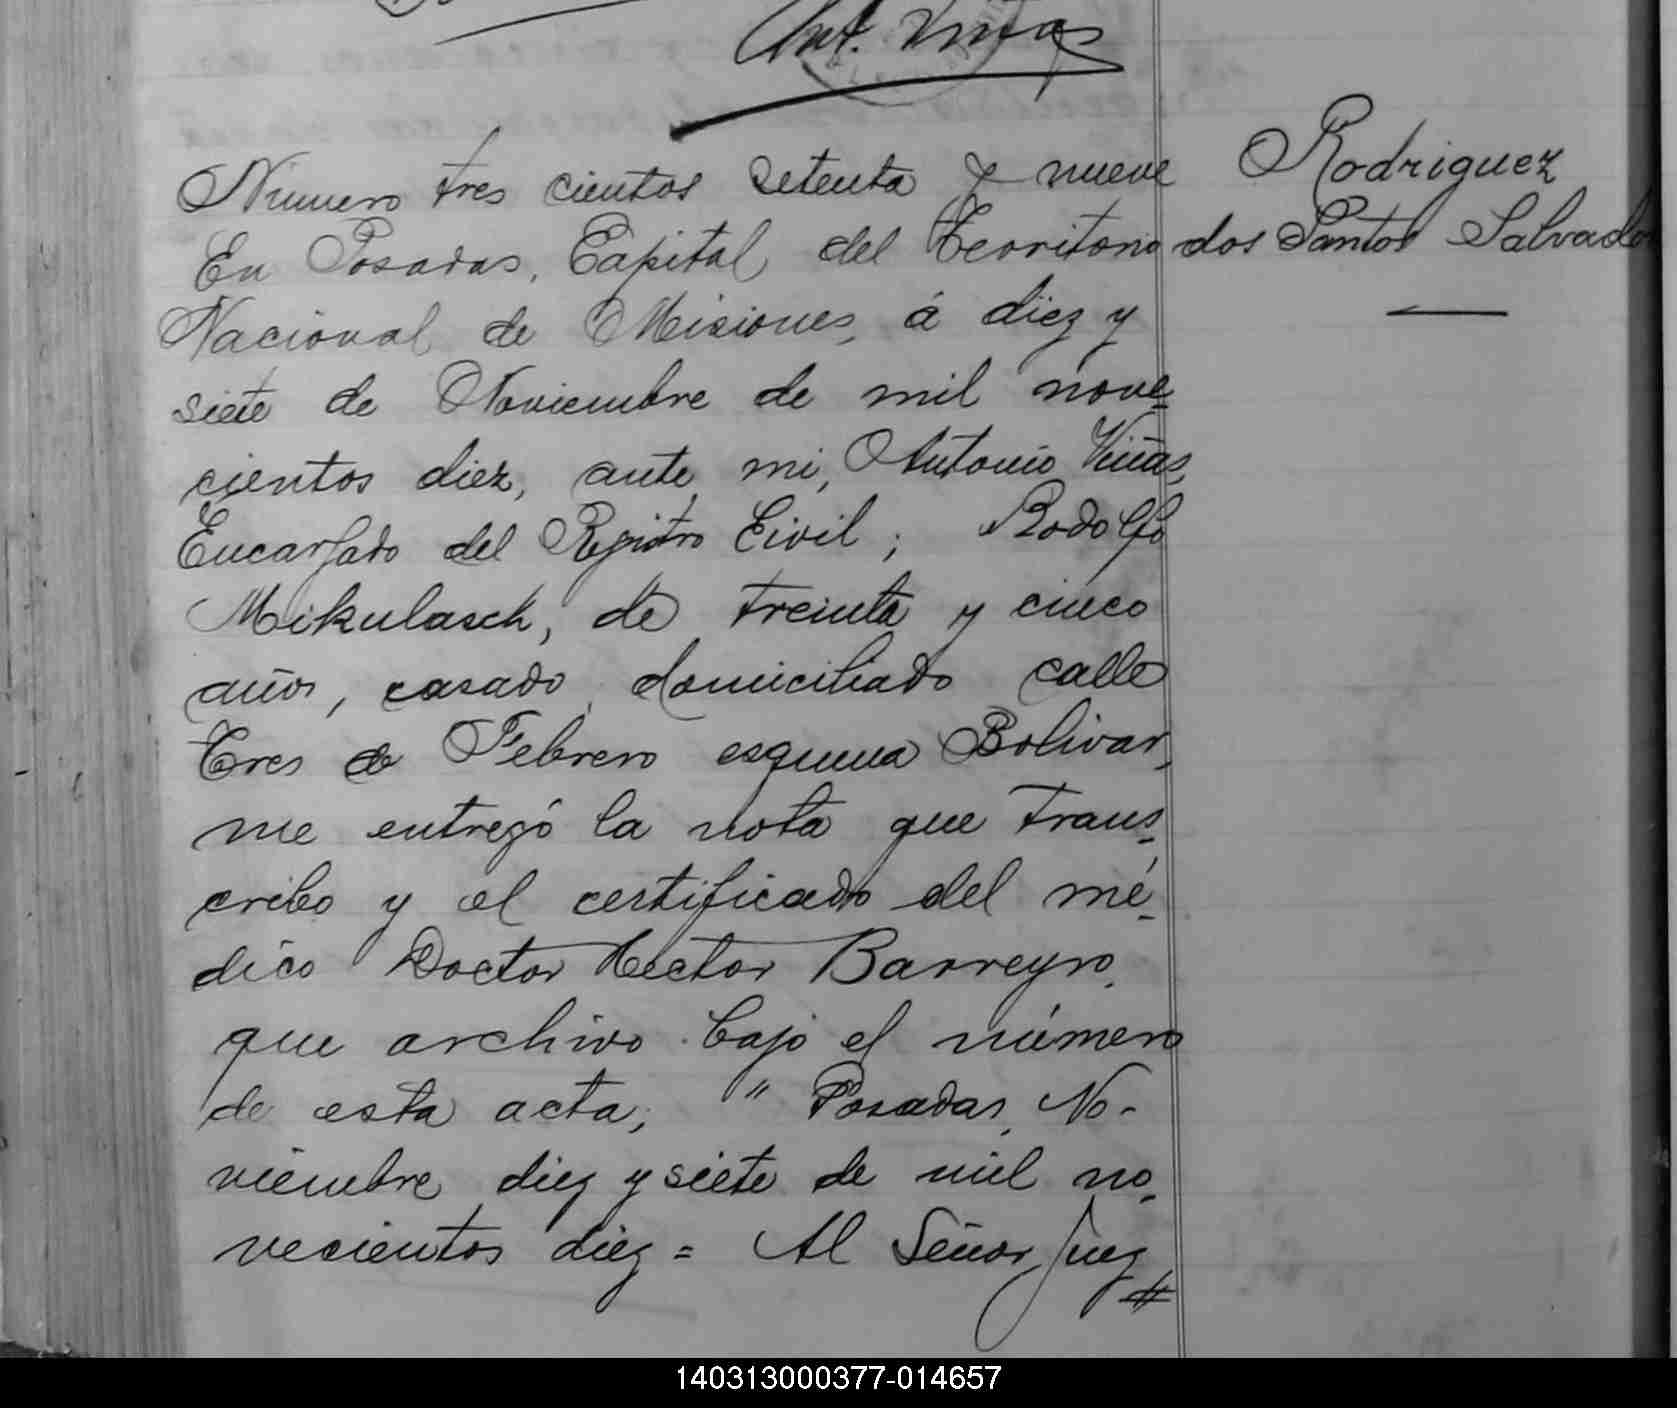 Ant. Viñas
Número tres cientos setenta y nueve
En Posadas, Capital del Territorio
Nacional de Misiones, á diez y
siete de Noviembre de mil nove-
cientos diez, ante mi, Antonio Viñas,
Encargado del Registro Civil; Rodolfo
Mikulasch, de treinta y cinco
años, casado, domiciliado calle
Tres de Febrero esquina Bolivar,
me entregó la nota que trans-
cribo y el certificado del mé-
dico Doctor Hector Barreyro,
que archivo bajo el número
de esta acta; " Posadas, No-
viembre diez y siete de mil no-
vecientos diez = Al Señor Juez
Rodriguez
dos Santos Salvador
140313000377-014657